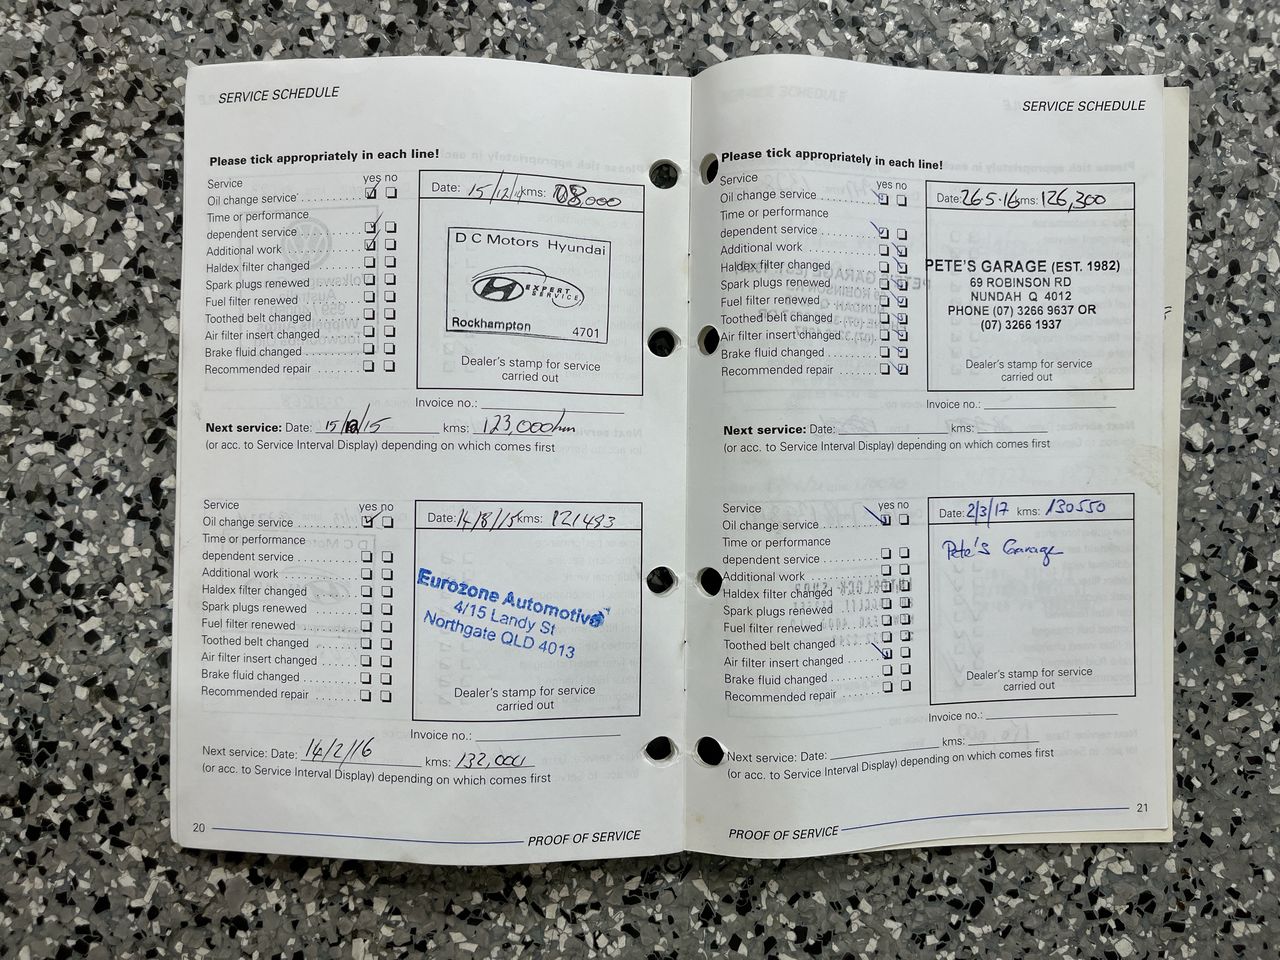 SERVICE SCHEDULE
Please tick appropriately in each line!
Service yes no
Oil change service
Time or performance
dependent service
Additional work
Haldex filter changed
Spark plugs renewed
Fuel filter renewed
Toothed belt changed
Air filter insert changed
Brake fluid changed
Recommended repair
Date: 15/12/14 kms:
D C Motors Hyundai
EXPERT
SERVICE
Rockhampton 4701
Dealer's stamp for service
carried out
Invoice no.:
Next service: Date: 15/12/15 kms: 123,000km
(or acc. to Service Interval Display) depending on which comes first
Service yes no
Oil change service
Time or performance
dependent service
Additional work
Haldex filter changed
Spark plugs renewed
Fuel filter renewed
Toothed belt changed
Air filter insert changed
Brake fluid changed
Recommended repair
Date: 14/8/15 kms: 121483
Eurozone Automotive
4/15 Landy St
Northgate QLD 4013
Dealer's stamp for service
carried out
Invoice no.:
Next service: Date: 14/2/16 kms: 132,000
(or acc. to Service Interval Display) depending on which comes first
20
PROOF OF SERVICE
SERVICE SCHEDULE
Please tick appropriately in each line!
Service yes no
Oil change service
Time or performance
dependent service
Additional work
Haldex filter changed
Spark plugs renewed
Fuel filter renewed
Toothed belt changed
Air filter insert changed
Brake fluid changed
Recommended repair
Date: 26.5.16 kms: 126,300
PETE'S GARAGE (EST. 1982)
69 ROBINSON RD
NUNDAH Q 4012
PHONE (07) 3266 9637 OR
(07) 3266 1937
Dealer's stamp for service
carried out
Invoice no.:
Next service: Date: kms:
(or acc. to Service Interval Display) depending on which comes first
Service yes no
Oil change service
Time or performance
dependent service
Additional work
Haldex filter changed
Spark plugs renewed
Fuel filter renewed
Toothed belt changed
Air filter insert changed
Brake fluid changed
Recommended repair
Date: 2/3/17 kms: 130550
Pete's Garage
Dealer's stamp for service
carried out
Invoice no.:
Next service: Date: kms:
(or acc. to Service Interval Display) depending on which comes first
21
PROOF OF SERVICE